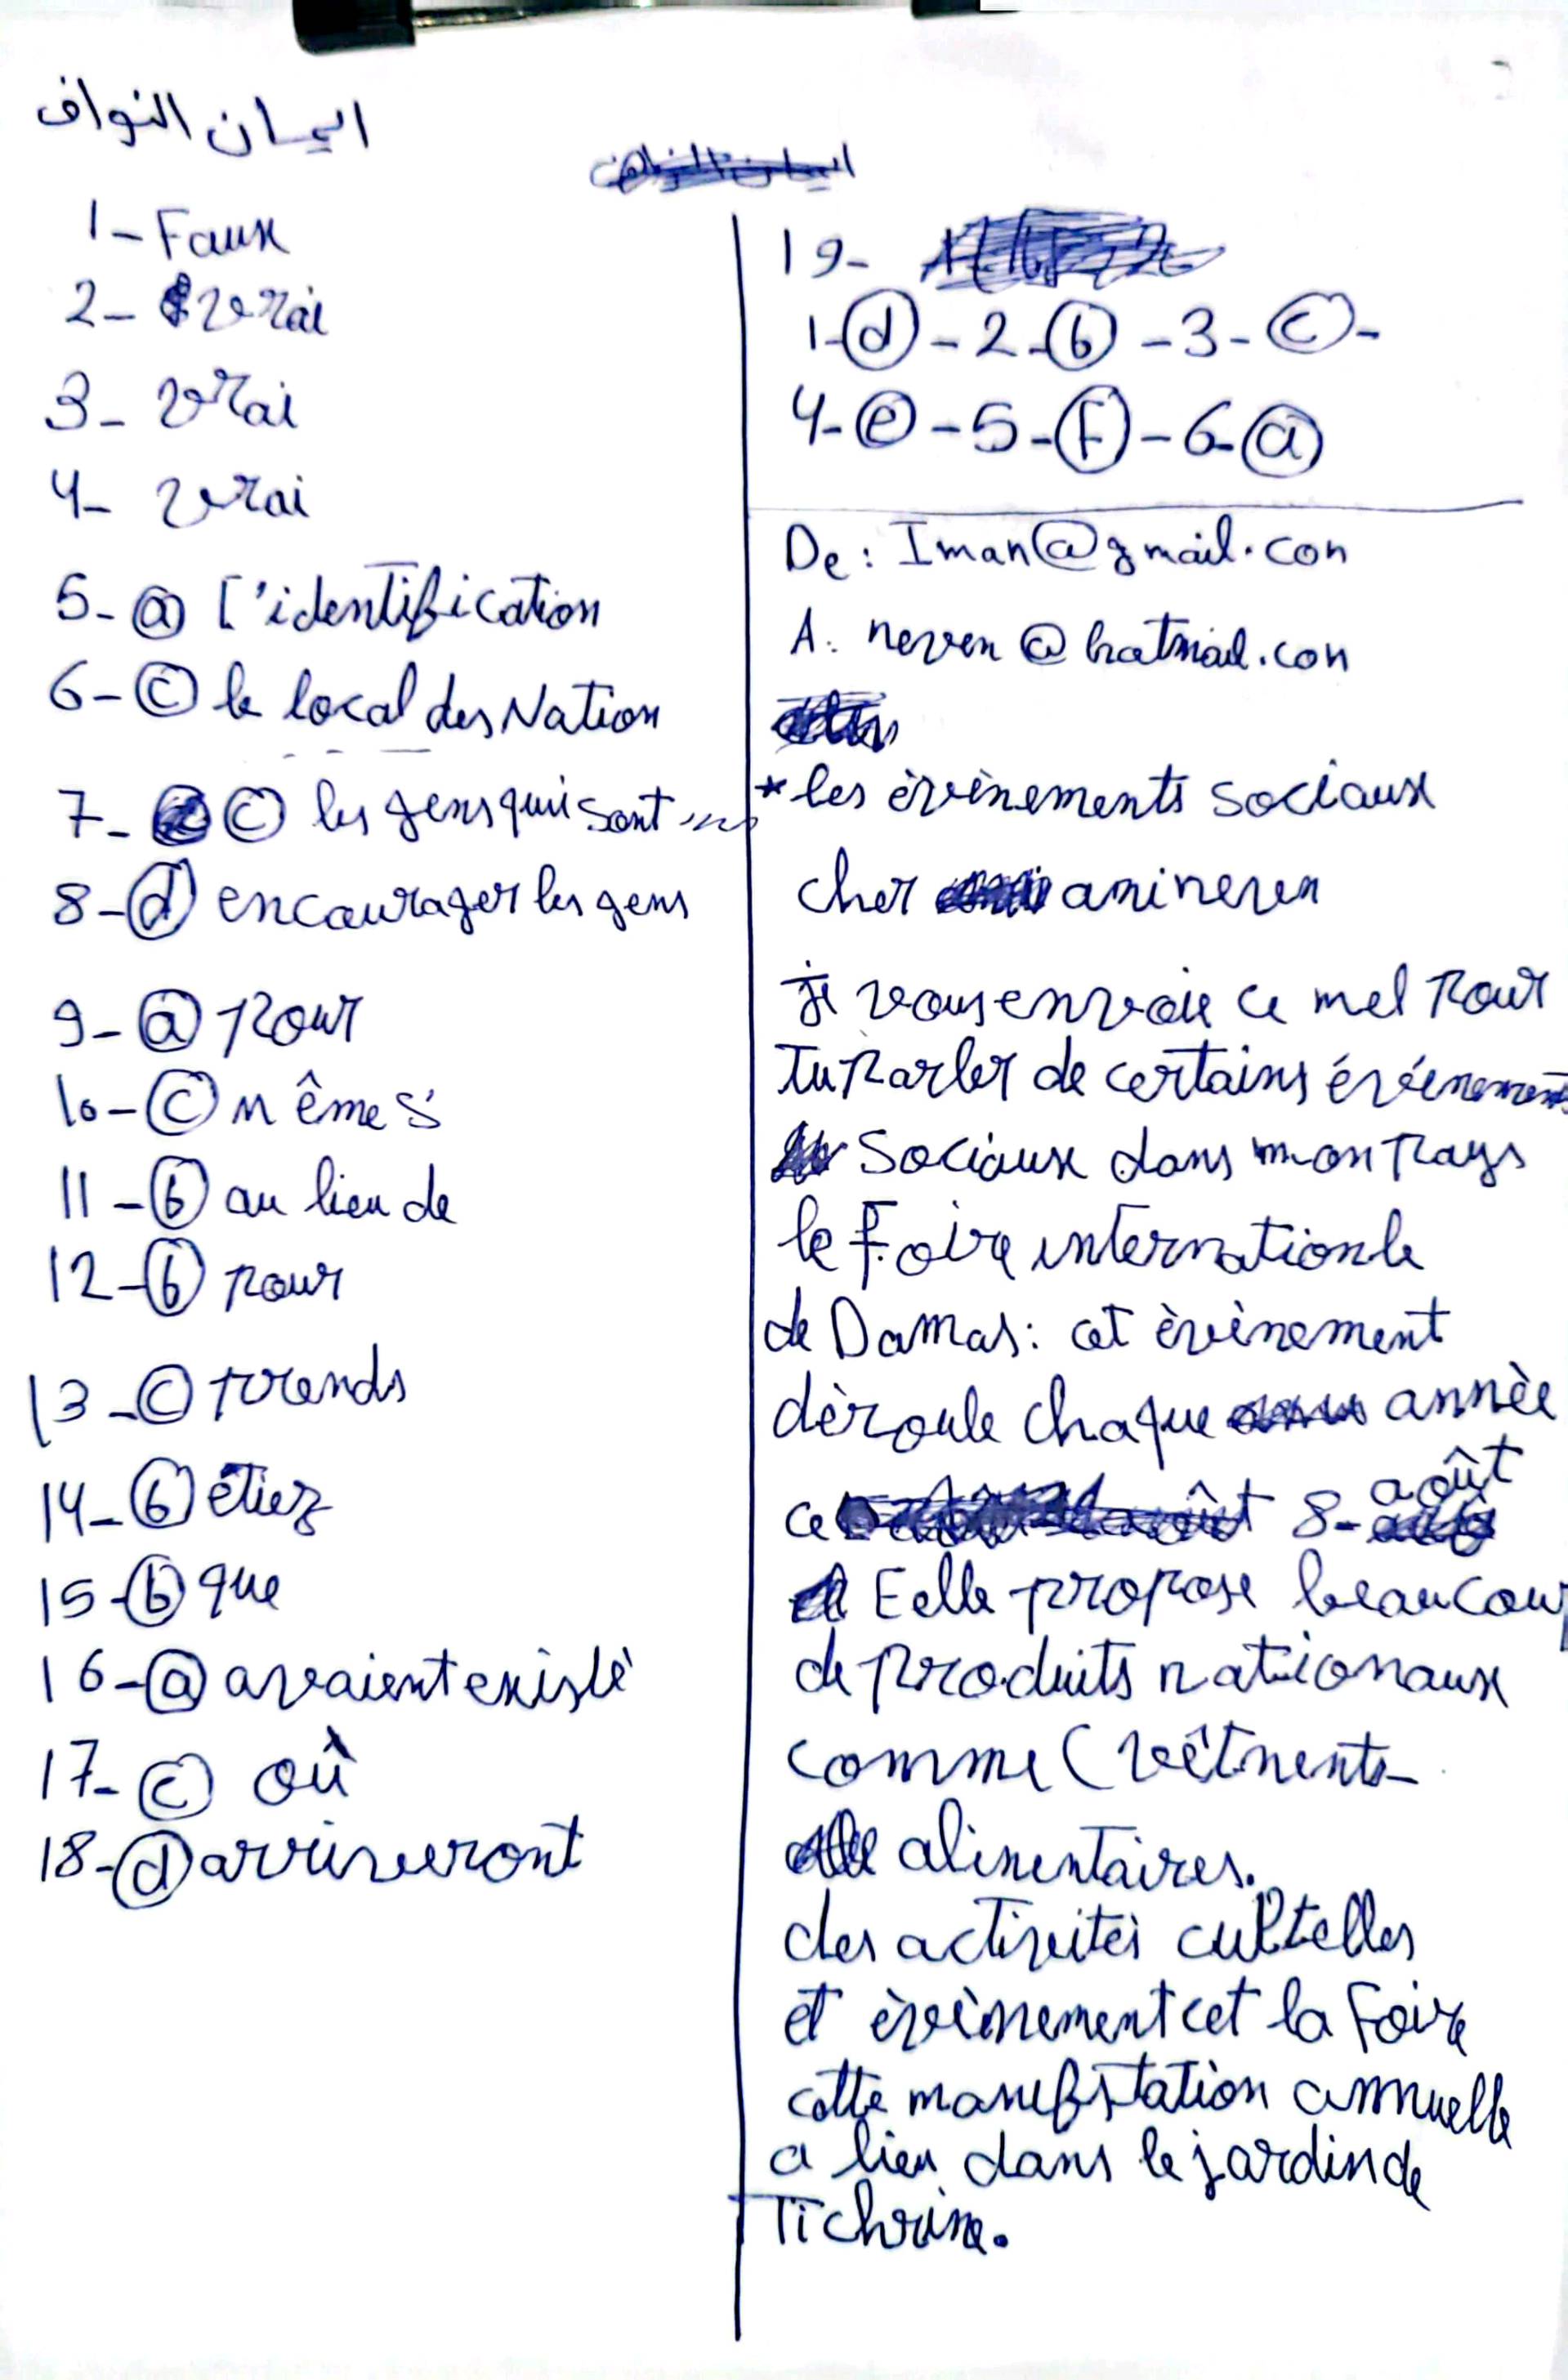 ايمان النواف
1- Faux
2- vrai
3- vrai
4- vrai
5- ⓐ l'identification
6- ⓒ le local des Nation
7- ⓒ les gens qui sont
8- ⓓ encourager les gens
9- ⓐ pour
10- ⓒ mêmes
11- ⓑ au lieu de
12- ⓑ pour
13- ⓒ prends
14- ⓑ étiez
15- ⓑ que
16- ⓐ avaient existé
17- ⓒ où
18- ⓓ arriveront
19-
1-ⓓ - 2-ⓑ - 3-ⓒ -
4-ⓔ - 5-ⓕ - 6-ⓐ
De: Iman@gmail.con
A: neven@hatmail.con
* les évènements sociaux
cher ami neven
je vous envoie ce mel pour
tu parler de certains événement
sociaux dans mon pays
le Foire internationle
de Damas: cet èvènement
dèroule chaque annèe
ce 8- août
Eelle propose beaucoup
de produits nationaux
comme ( vêtments-
alimentaires.
des activitès cultelles
et èvènement cet la Foire
cette manifstation annuelle
a lieu dans le jardin de
Tichrine.